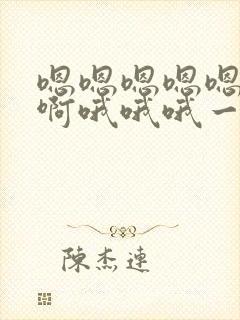 嗯嗯嗯嗯嗯
啊哦哦哦一
陈杰连